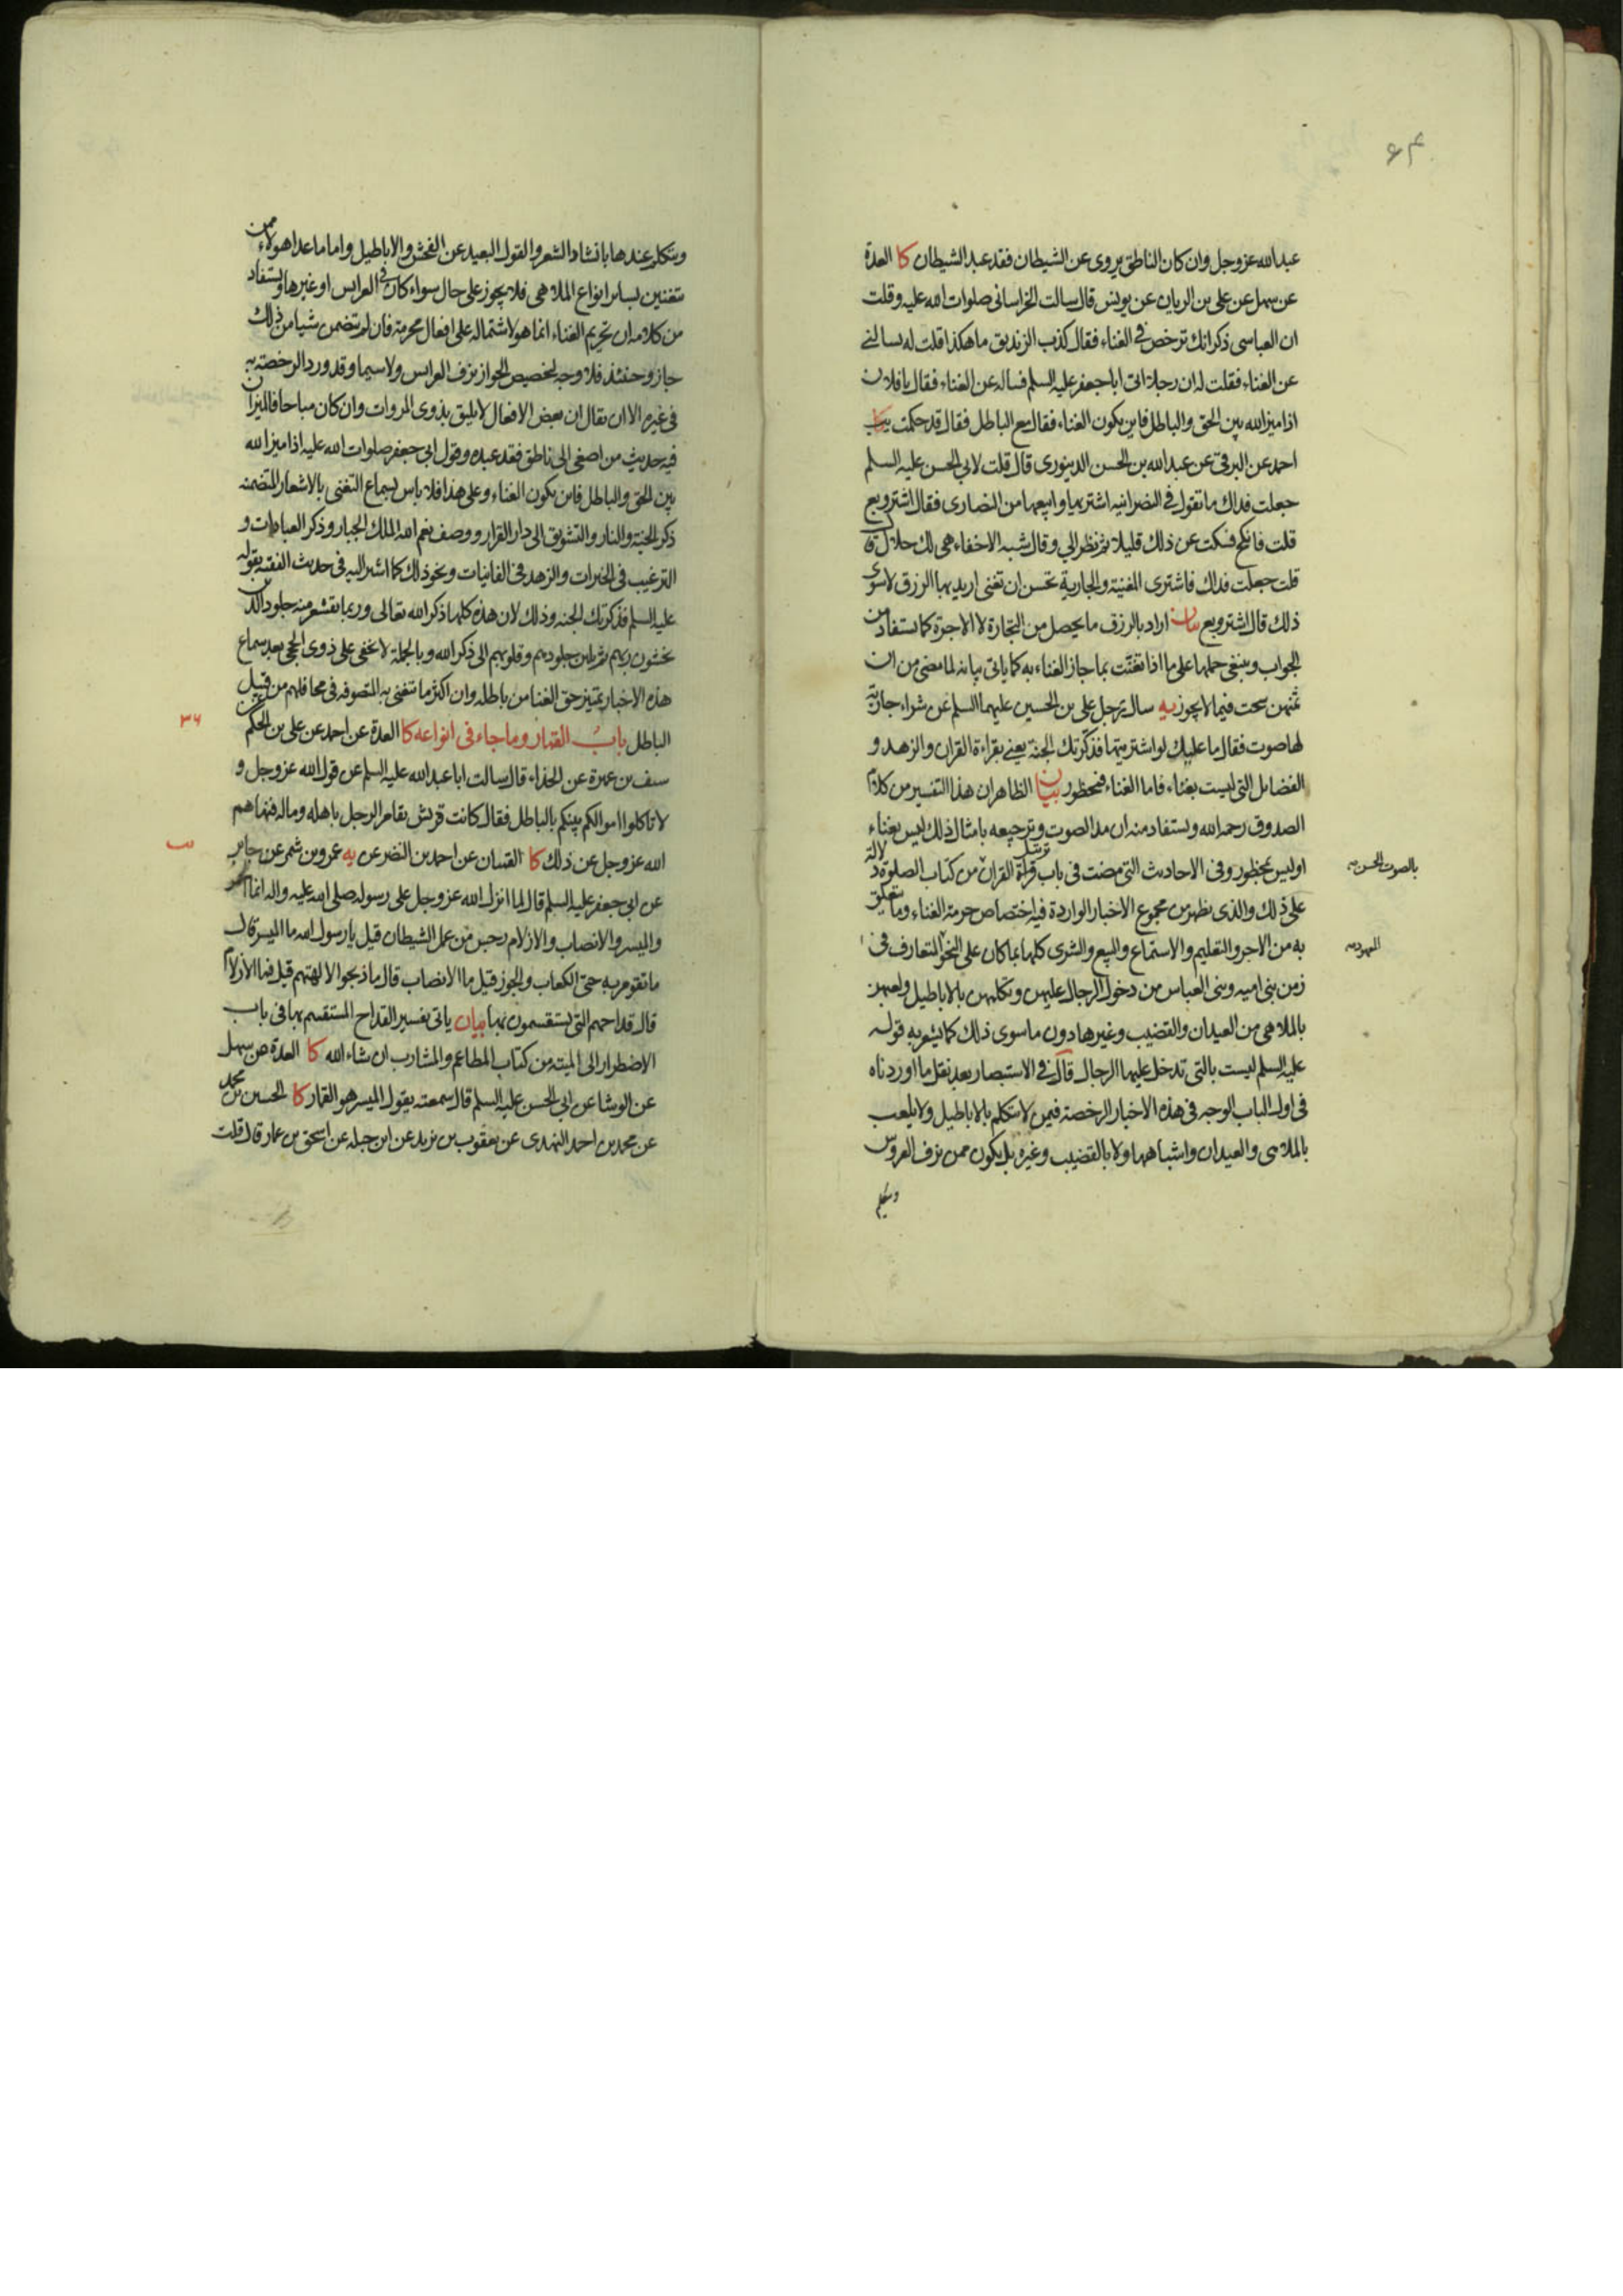 ۶۴
عبد الله عز وجل وان كان الناطق يروى عن الشيطان فقد عبد الشيطان كا العدة
عن سهل عن على بن الريان عن يونس قال سالت الخراسانى صلوات الله عليه وقلت
ان العباسى ذكر انك ترخص فى الغناء فقال كذب الزنديق ما هكذا قلت له يسالنى
عن الغناء فقلت له ان رجلا اتى ابا جعفر عليه السلم فساله عن الغناء فقال يا فلان
اذا ميز الله بين الحق والباطل فاين يكون الغناء فقال مع الباطل فقال قد حكمت يب
احمد عن البرقى عن عبد الله بن الحسن الدينورى قال قلت لابى الحسن عليه السلم
جعلت فداك ما تقول فى النصرانيه اشتريها وابيعها من النصارى فقال اشتر وبع
قلت فانكح فسكت عن ذلك قليلا ثم نظر الي وقال شبه الاخفاء هى لك حلال قال
قلت جعلت فداك فاشترى المغنية والجارية تحسن ان تغنى اريد بها الرزق لا سوى
ذلك قال اشتر وبع بيان اراد بالرزق ما يحصل من التجارة لا الاجرة كما يستفاد من
الجواب وينبغى حملها على ما اذا تغنت بما جاز الغناء به كما ياتى بيانه لما مضى من ان
ثمنهن سحت فيما لا يجوز يه سال رجل على بن الحسين عليهما السلم عن شراء جارية
لها صوت فقال ما عليك لو اشتريتها فذكرتك الجنة يعنى بقراءة القران والزهد و
الفضايل التى ليست بغناء فاما الغناء فمحظور بيان الظاهر ان هذا التفسير من كلام
الصدوق رحمه الله ويستفاد منه ان مد الصوت وترجيعه بامثال ذلك ليس بغناء
او ليس بمحظور وفى الاحاديث التى مضت فى باب ترتيل قراءة القران من كتاب الصلوة دلالة
بالصوت الحسن
على ذلك والذى يظهر من مجموع الاخبار الواردة فيه اختصاص حرمة الغناء وما يتعلق
به من الاجر والتعليم والاستماع والبيع والشرى كلها بما كان على النحو المتعارف فى
المعهود
زمن بنى اميه وبنى العباس من دخول الرجال عليهن وتكلمهن بالاباطيل ولعبهن
بالملاهى من العيدان والقضيب وغيرها دون ما سوى ذلك كما يشعر به قوله
عليه السلم ليست بالتى تدخل عليها الرجال قال فى الاستبصار بعد نقل ما اوردناه
فى اول الباب الوجه فى هذه الاخبار الرخصة فيمن لا يتكلم بالاباطيل ولا يلعب
بالملاهى والعيدان واشباهها ولا بالقضيب وغيره بل يكون ممن يزف العروس
ويتكلم
ويتكلم عندها بانشاد الشعر والقول البعيد عن الفحش والاباطيل واما ما عدا هولاء ممن
يتغنين بساير انواع الملاهى فلا يجوز على حال سواء كان فى العرايس او غيرها ويستفاد
من كلامه ان تحريم الغناء انما هو لاشتماله على افعال محرمة فان لم تتضمن شيئا من ذلك
جاز وحينئذ فلا وجه لتخصيص الجواز بزف العرايس ولا سيما وقد ورد الرخصة به
فى غيره الا ان يقال ان بعض الافعال لا يليق بذوى المروات وان كان مباحا فالميزان
فيه حديث من اصغى الى ناطق فقد عبده وقول ابى جعفر صلوات الله عليه اذا ميز الله
بين الحق والباطل فاين يكون الغناء وعلى هذا فلا باس بسماع التغنى بالاشعار المتضمنه
ذكر الجنة والنار والتشويق الى دار القرار ووصف نعم الله الملك الجبار وذكر العبادات و
الترغيب فى الخيرات والزهد فى الفانيات ونحو ذلك كما اشير اليه فى حديث الفقيه بقوله
عليه السلم فذكرتك الجنه وذلك لان هذه كلها ذكر الله تعالى وربما تقشعر منه جلود الذين
يخشون ربهم ثم تلين جلودهم وقلوبهم الى ذكر الله وبالجملة لا يخفى على ذوى الحجى بعد سماع
هذه الاخبار تمييز حق الغنا من باطله وان اكثر ما يتغنى به المتصوفه فى محافلهم من قبيل
الباطل باب القمار وما جاء فى انواعه كا العدة عن احمد عن على بن الحكم
۳۶
سيف بن عميرة عن الحذاء قال سالت ابا عبد الله عليه السلم عن قول الله عز وجل و
لا تاكلوا اموالكم بينكم بالباطل فقال كانت قريش يقامر الرجل باهله وماله فنهاهم
الله عز وجل عن ذلك كا القميان عن احمد بن النضر عن يه عمرو بن شمر عن جابر
عن ابى جعفر عليه السلم قال لما انزل الله عز وجل على رسوله صلى الله عليه واله انما الخمر
والميسر والانصاب والازلام رجس من عمل الشيطان قيل يا رسول الله ما الميسر قال
ما تقومر به حتى الكعاب والجوز قيل ما الانصاب قال ما ذبحوا لالهتهم قيل فما الازلام
قال قداحهم التى يستقسمون بها بيان ياتى تفسير القداح المستقسم بها فى باب
الاضطرار الى الميته من كتاب المطاعم والمشارب ان شاء الله كا العدة عن سهل
عن الوشا عن ابى الحسن عليه السلم قال سمعته يقول الميسر هو القمار كا الحسين بن محمد
عن محمد بن احمد النهدى عن يعقوب بن يزيد عن ابن جبله عن اسحق بن عمار قال قلت